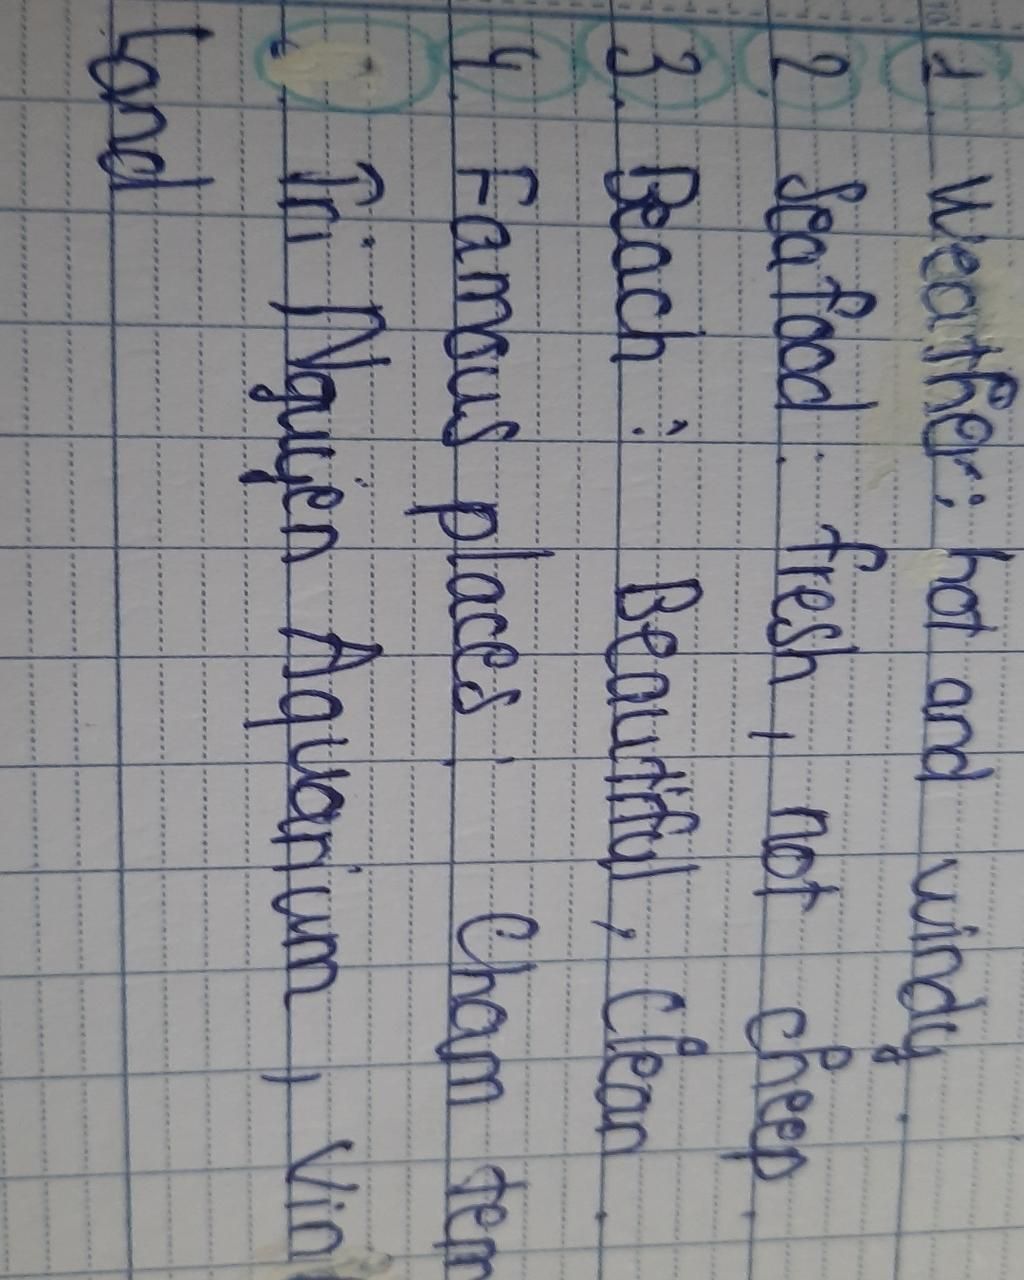 1. Weather: hot and windy.
2. Seafood: fresh, not cheep.
3. Beach: Beautiful, Clean.
4. Famous places: Cham tem
Tri Nguyen Aquarium, Vin
Land